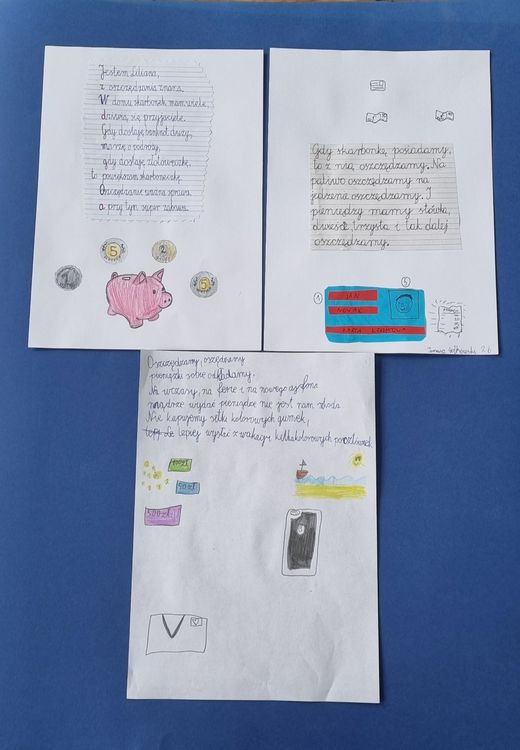 Jestem Liliana,
z oszczędzania znana.
W domu skarbonek mam wiele,
dzielną się przyjaciele.
Gdy dostaję banknot duży,
marzę o podróży,
gdy dostaję złotóweczkę,
to powiększam skarboneczkę.
Oszczędzanie ważna sprawa,
a przy tym super zabawa.
1
5
2
5
Gdy skarbonkę posiadamy,
to z nią oszczędzamy. Na
paliwo oszczędzamy na
jedzenie oszczędzamy. I
pieniędzy mamy stówka,
dwieście, trzysta i tak dalej
oszczędzamy.
JAN
NOWAK
KARTA KREDYTOWA
2 b
Oszczędzamy, oszczędzamy
pieniążki sobie odkładamy.
Na wczasy, na ferie i na nowego ajfona
mądrze wydać pieniądze nie jest nam szkoda
Nie kupujemy setki kolorowych gumek,
Bo lepiej wysłać z wakacji kilka kolorowych pocztówek
100 zł
50 zł
500 zł